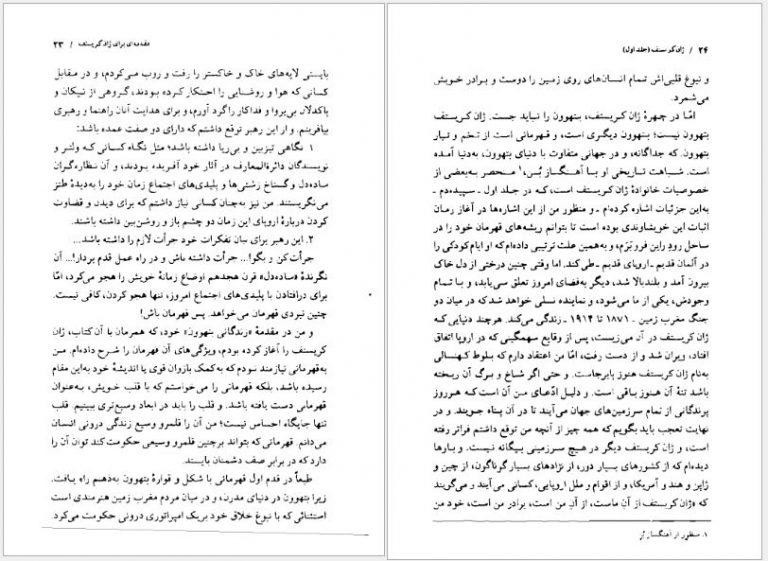 مقدمه‌ای برای ژان کریستف / ۲۳
بایستی لایه‌های خاک و خاکستر را رفت و روب می‌کردم، و در مقابل
کسانی که هوا و روشنایی را احتکار کرده بودند، گروهی از نیکان و
پاکدلان بی‌پروا و فداکار را گرد آورم، و برای هدایت آنان راهنما و رهبری
بیافرینم. و از این رهبر توقع داشتم که دارای دو صفت عمده باشد:
۱ نگاهی تیزبین و بی‌ریا داشته باشد؛ مثل نگاه کسانی که ولتر و
نویسندگان دائرةالمعارف در آثار خود آفریده بودند، و آن نظاره‌گران
ساده‌دل و گستاخ زشتی‌ها و پلیدی‌های اجتماع زمان خود را به‌دیدهٔ طنز
می‌نگریستند. من نیز به‌چنان کسانی نیاز داشتم که برای دیدن و قضاوت
کردن دربارهٔ اروپای این زمان دو چشم باز و روشن‌بین داشته باشند.
۲. این رهبر برای بیان تفکرات خود جرأت لازم را داشته باشد...
جرأت کن و بگو!... جرأت داشته باش و در راه عمل قدم بردار!... آن
نگرندهٔ «ساده‌دل» قرن هجدهم اوضاع زمانهٔ خویش را هجو می‌کرد، امّا
برای درافتادن با پلیدی‌های اجتماع امروز، تنها هجو کردن، کافی نیست.
چنین نبردی قهرمان می‌خواهد. پس قهرمان باش!
و من در مقدمهٔ «زندگانی بتهوون» خود، که همزمان با آن کتاب، ژان
کریستف را آغاز کرده بودم، ویژگی‌های آن قهرمان را شرح داده‌ام. من
به‌قهرمانی نیازمند نبودم که به‌کمک بازوان قوی یا اندیشهٔ خود به‌این مقام
رسیده باشد، بلکه قهرمانی را می‌خواستم که با قلب خویش، به‌عنوان
قهرمانی دست یافته باشد. و قلب را باید در ابعاد وسیع‌تری ببینیم. قلب
تنها جایگاه احساس نیست؛ من آن را قلمرو وسیع زندگی درونی انسان
می‌دانم. قهرمانی که بتواند برچنین قلمرو وسیعی حکومت کند توان آن را
دارد که در برابر صف دشمنان بایستد.
طبعاً در قدم اول قهرمانی با شکل و قوارهٔ بتهوون به‌ذهنم راه یافت.
زیرا بتهوون در دنیای مدرن، و در میان مردم مغرب زمین هنرمندی است
استثنائی که با نبوغ خلاق خود بر یک امپراتوری درونی حکومت می‌کرد.
۲۴ / ژان کریستف (جلد اول)
و نبوغ قلبی‌اش تمام انسان‌های روی زمین را دوست و برادر خویش
می‌شمرد.
امّا در چهرهٔ ژان کریستف، بتهوون را نباید جست. ژان کریستف
بتهوون نیست؛ بتهوون دیگری است، و قهرمانی است از تخم و تبار
بتهوون، که جداگانه، و در جهانی متفاوت با دنیای بتهوون، به‌دنیا آمده
است. شباهت تاریخی او با آهنگساز بُن،۱ منحصر به‌بعضی از
خصوصیات خانوادهٔ ژان کریستف است، که در جلد اول ـ سپیده‌دم ـ
به‌این جزئیات اشاره کرده‌ام ـ و منظور من از این اشاره‌ها در آغاز رمان
اثبات این خویشاوندی بوده است تا بتوانم ریشه‌های قهرمان خود را در
ساحل رود راین فرو بَرَم، و به‌همین علت ترتیبی داده‌ام که او ایام کودکی را
در آلمان قدیم ـ اروپای قدیم ـ طی‌کند. اما وقتی چنین درختی از دل خاک
بیرون آمد و بلندبالا شد، دیگر به‌فضای امروز تعلق می‌یابد، و با تمام
وجودش، یکی از ما می‌شود، و نماینده نسلی خواهد شد که در میان دو
جنگ مغرب زمین ـ ۱۸۷۱ تا ۱۹۱۴ ـ زندگی می‌کند. هرچند دنیایی که
ژان کریستف در آن می‌زیست، پس از وقایع سهمگینی که در اروپا اتفاق
افتاد، ویران شد و از دست رفت، امّا من اعتقاد دارم که بلوط کهنسالی
به‌نام ژان کریستف هنوز پابرجاست. و حتی اگر شاخ و برگ آن ریخته
باشد تنهٔ آن هنوز باقی است. و دلیل ادّعای من آن است که هر روز
پرندگانی از تمام سرزمین‌های جهان می‌آیند تا در آن پناه جویند. و در
نهایت تعجب باید بگویم که همه چیز از آنچه من توقع داشتم فراتر رفته
است، و ژان کریستف دیگر در هیچ سرزمینی بیگانه نیست. و بارها
دیده‌ام که از کشورهای بسیار دور، از نژادهای بسیار گوناگون، از چین و
ژاپن و هند و آمریکا، و از اقوام و ملل اروپایی، کسانی می‌آیند و می‌گویند
که «ژان کریستف از آنِ ماست، از آنِ من است، برادر من است، خود من
۱. منظور از آهنگساز